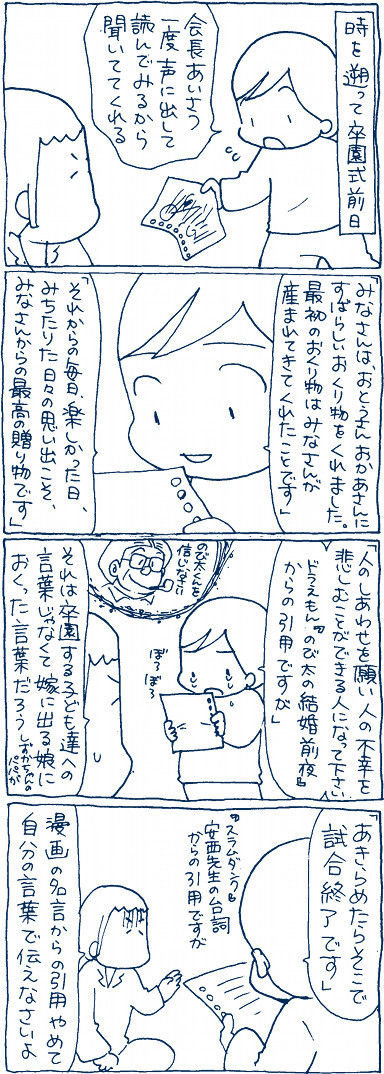 時を遡って卒園式前日
会長あいさつ
一度声に出して
読んでみるから
聞いててくれる
「みなさんは、おとうさんおかあさんに
すばらしいおくり物をくれました。
最初のおくり物はみなさんが
産まれてきてくれたことです」
「それからの毎日、楽しかった日、
みちたりた日々の思い出こそ、
みなさんからの最高の贈り物です」
「人のしあわせを願い人の不幸を
悲しむことができる人になって下さい
ドラえもん『のび太の結婚前夜』
からの引用ですが」
のび太くんを
信じなさい
ぼろ
ぼろ
それは卒園する子ども達への
言葉じゃなくて嫁に出る娘に
おくった言葉だろう
しずかちゃんの
パパが
「あきらめたらそこで
試合終了です」
『スラムダンク』
安西先生の台詞
からの引用ですが
漫画の名言からの引用やめて
自分の言葉で伝えなさいよ